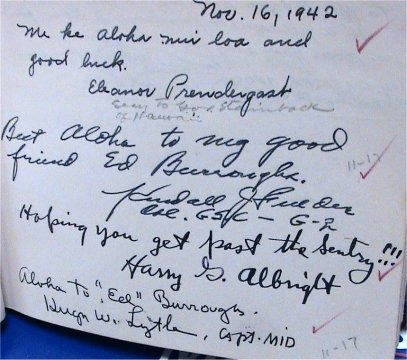 Nov. 16, 1942
Me ke aloha nui loa and
good luck.
Eleanor Prendergast
Secy to Gov. Stainback
of Hawaii
Best Aloha to my good
friend Ed Burroughs.
11-17
Kendall J Fielder
Col. GSC - G-2
Hoping you get past the Sentry!!!
Harry G. Albright
Aloha to "Ed" Burroughs.
Hugh W. Lytle, Capt. MID
11-17